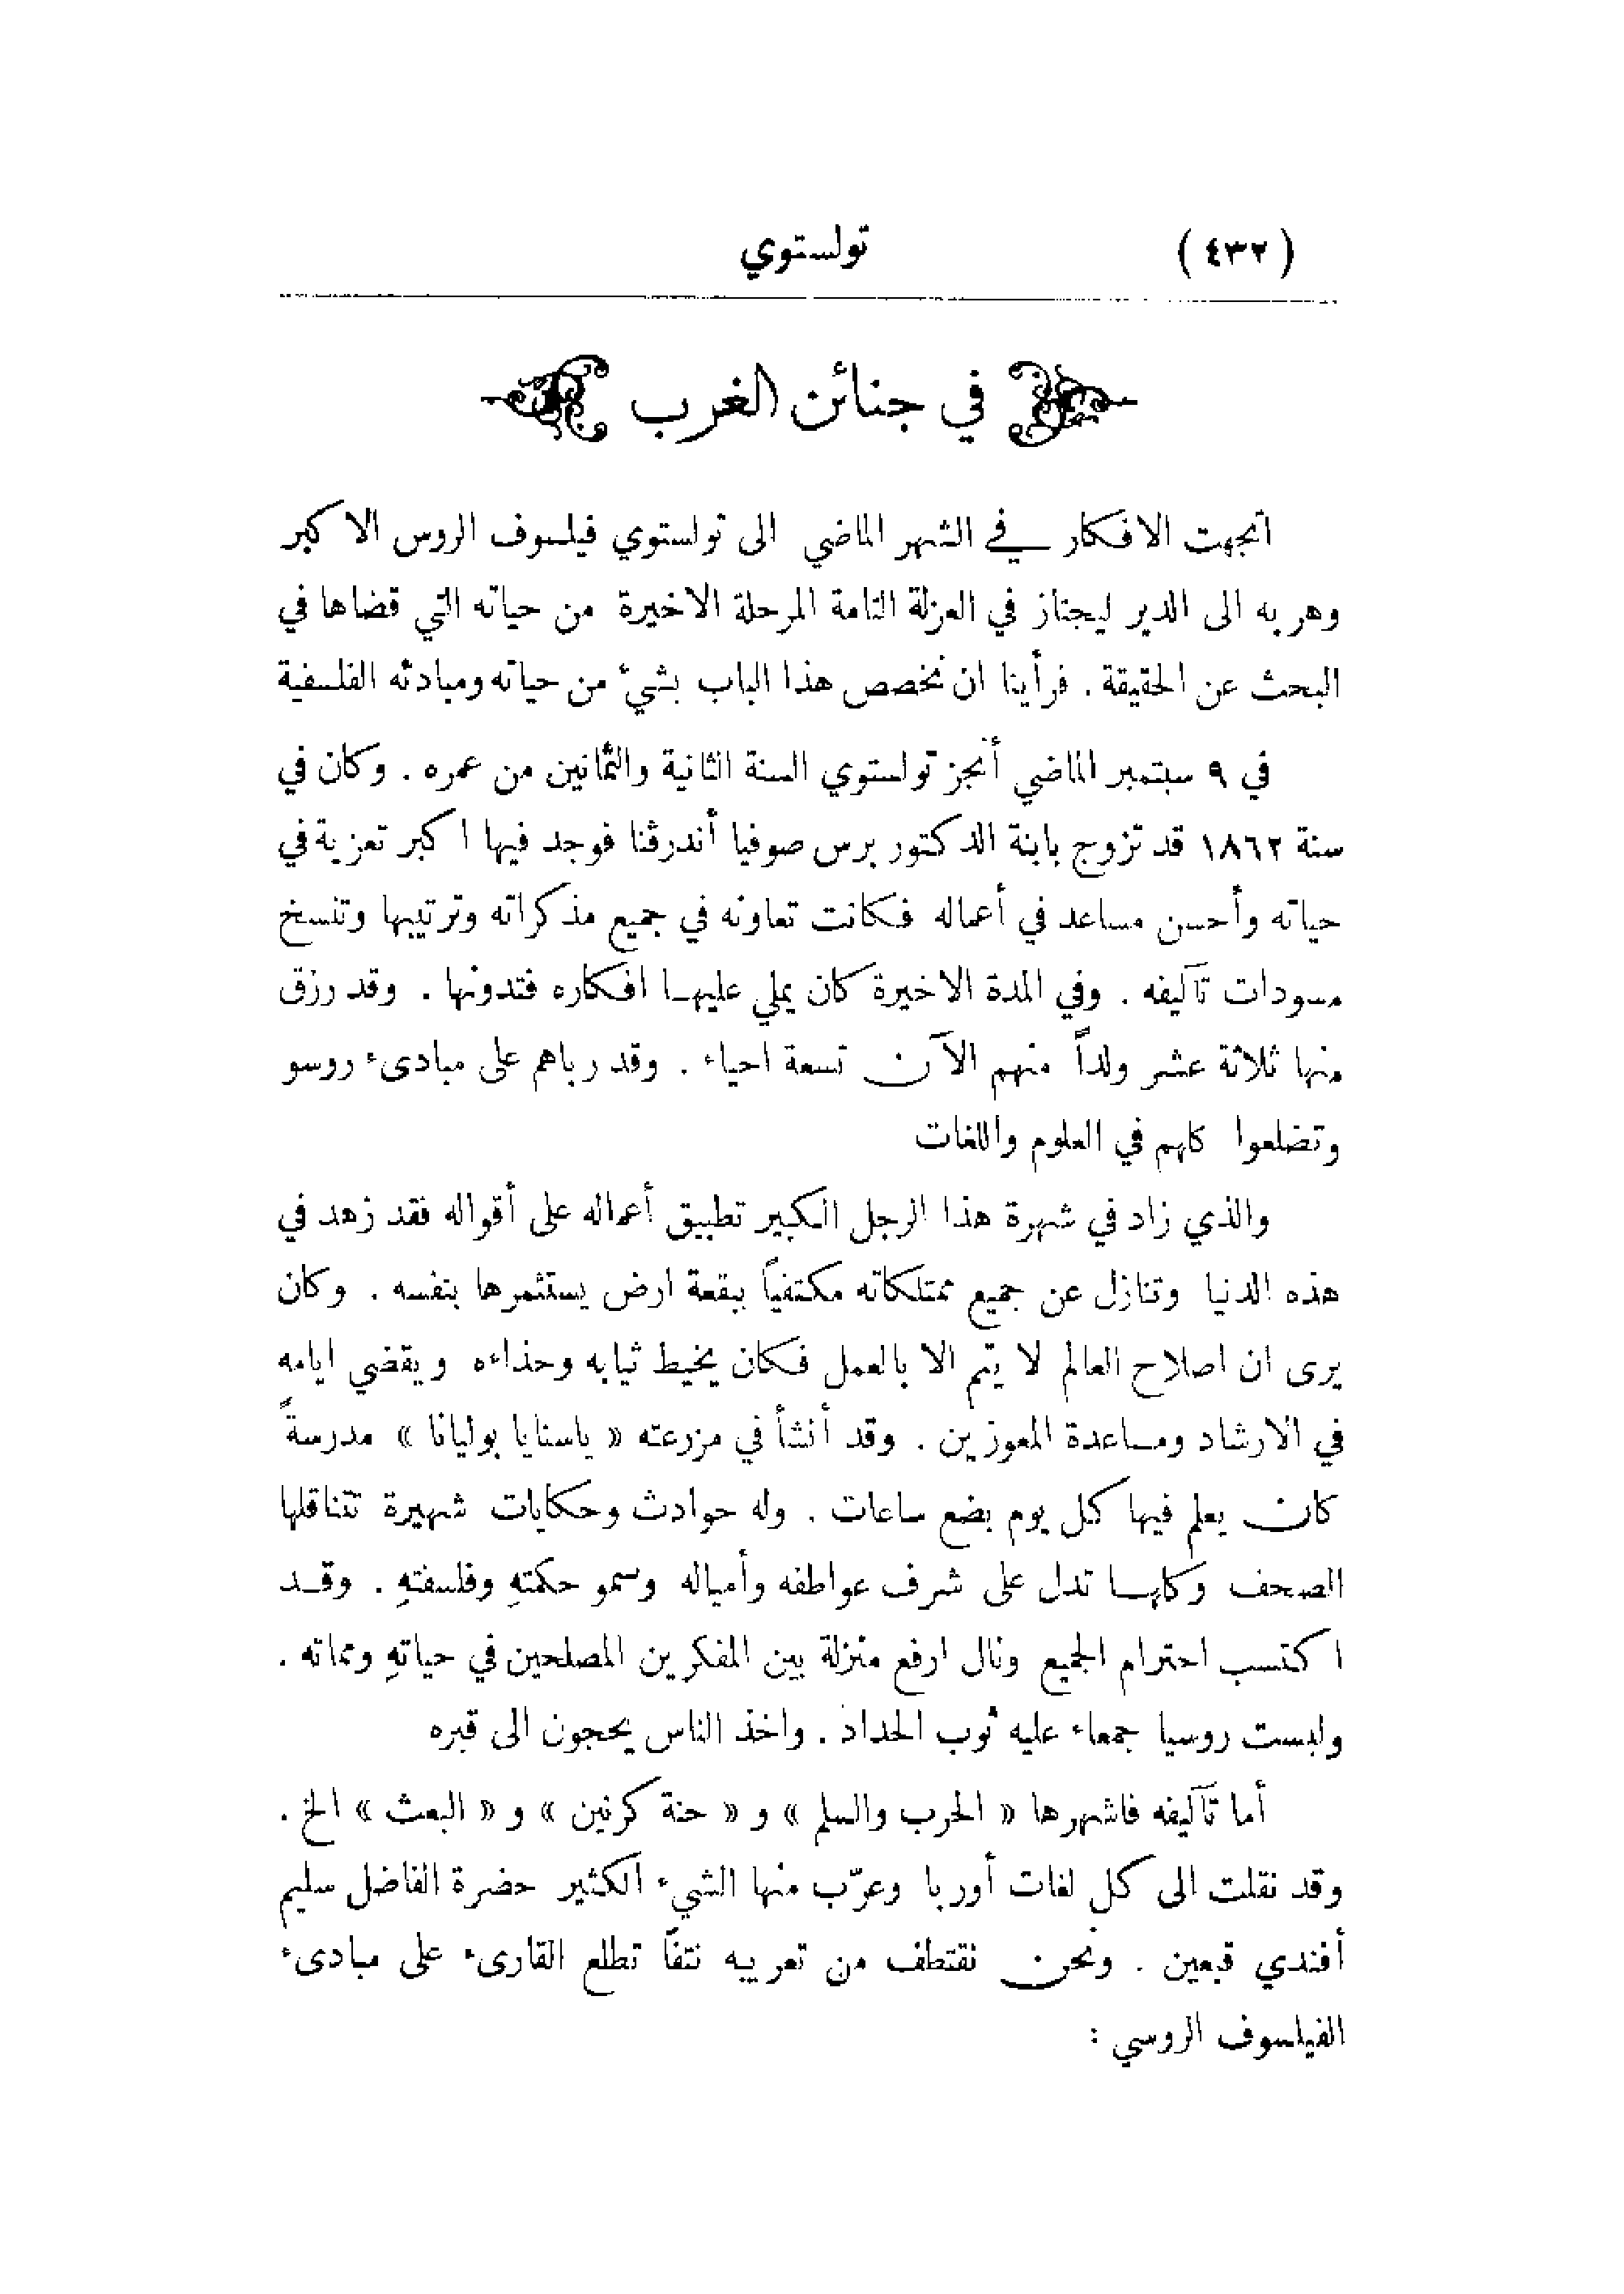 (٤٣٢) تولستوي
في جنائن الغرب
اتجهت الافكار في الشهر الماضي الى تولستوي فيلسوف الروس الاكبر
وهربه الى الدير ليجتاز في العزلة التامة المرحلة الاخيرة من حياته التي قضاها في
البحث عن الحقيقة . فرأينا ان نخصص هذا الباب بشيء من حياته ومبادئه الفلسفية
في ٩ سبتمبر الماضي أنجز تولستوي السنة الثانية والثمانين من عمره . وكان في
سنة ١٨٦٢ قد تزوج بابنة الدكتور برس صوفيا أندرڤنا فوجد فيها اكبر تعزية في
حياته وأحسن مساعد في أعماله فكانت تعاونه في جميع مذكراته وترتيبها وتنسخ
مسودات تآليفه . وفي المدة الاخيرة كان يملي عليها افكاره فتدونها . وقد رزق
منها ثلاثة عشر ولداً منهم الآن تسعة احياء . وقد رباهم على مبادىء روسو
وتضلعوا كلهم في العلوم واللغات
والذي زاد في شهرة هذا الرجل الكبير تطبيق أعماله على أقواله فقد زهد في
هذه الدنيا وتنازل عن جميع ممتلكاته مكتفياً ببقعة ارض يستثمرها بنفسه . وكان
يرى ان اصلاح العالم لا يتم الا بالعمل فكان يخيط ثيابه وحذاءه ويقضي ايامه
في الارشاد ومساعدة المعوزين . وقد أنشأ في مزرعته « ياسنايا بوليانا » مدرسةً
كان يعلم فيها كل يوم بضع ساعات . وله حوادث وحكايات شهيرة تتناقلها
الصحف وكلها تدل على شرف عواطفه وأمياله وسمو حكمتهِ وفلسفتهِ . وقد
اكتسب احترام الجميع ونال ارفع منزلة بين المفكرين المصلحين في حياتهِ ومماته .
ولبست روسيا جمعاء عليه ثوب الحداد . واخذ الناس يحجون الى قبره
أما تآليفه فاشهرها « الحرب والسلم » و « حنة كرنين » و « البعث » الخ .
وقد نقلت الى كل لغات أوربا وعرّب منها الشيء الكثير حضرة الفاضل سليم
أفندي قبعين . ونحن نقتطف من تعريبه نتفاً تطلع القارىء على مبادىء
الفيلسوف الروسي :